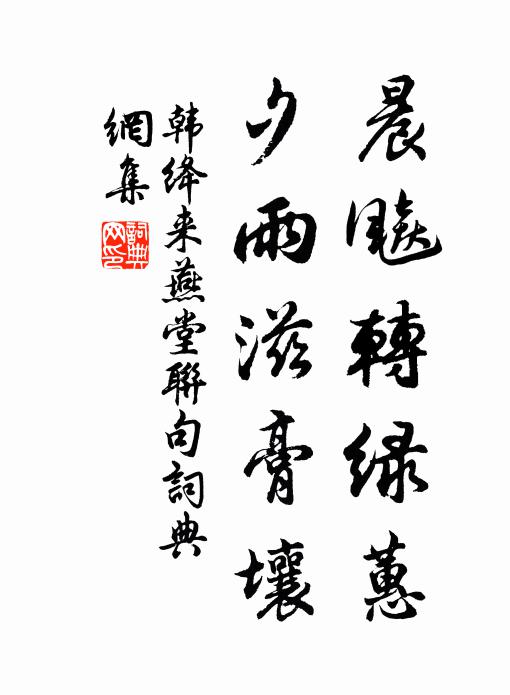 晨飈轉绿蕙
夕雨滋膏壤
韩绛来燕堂聯句詞典
網集
詞典
网印